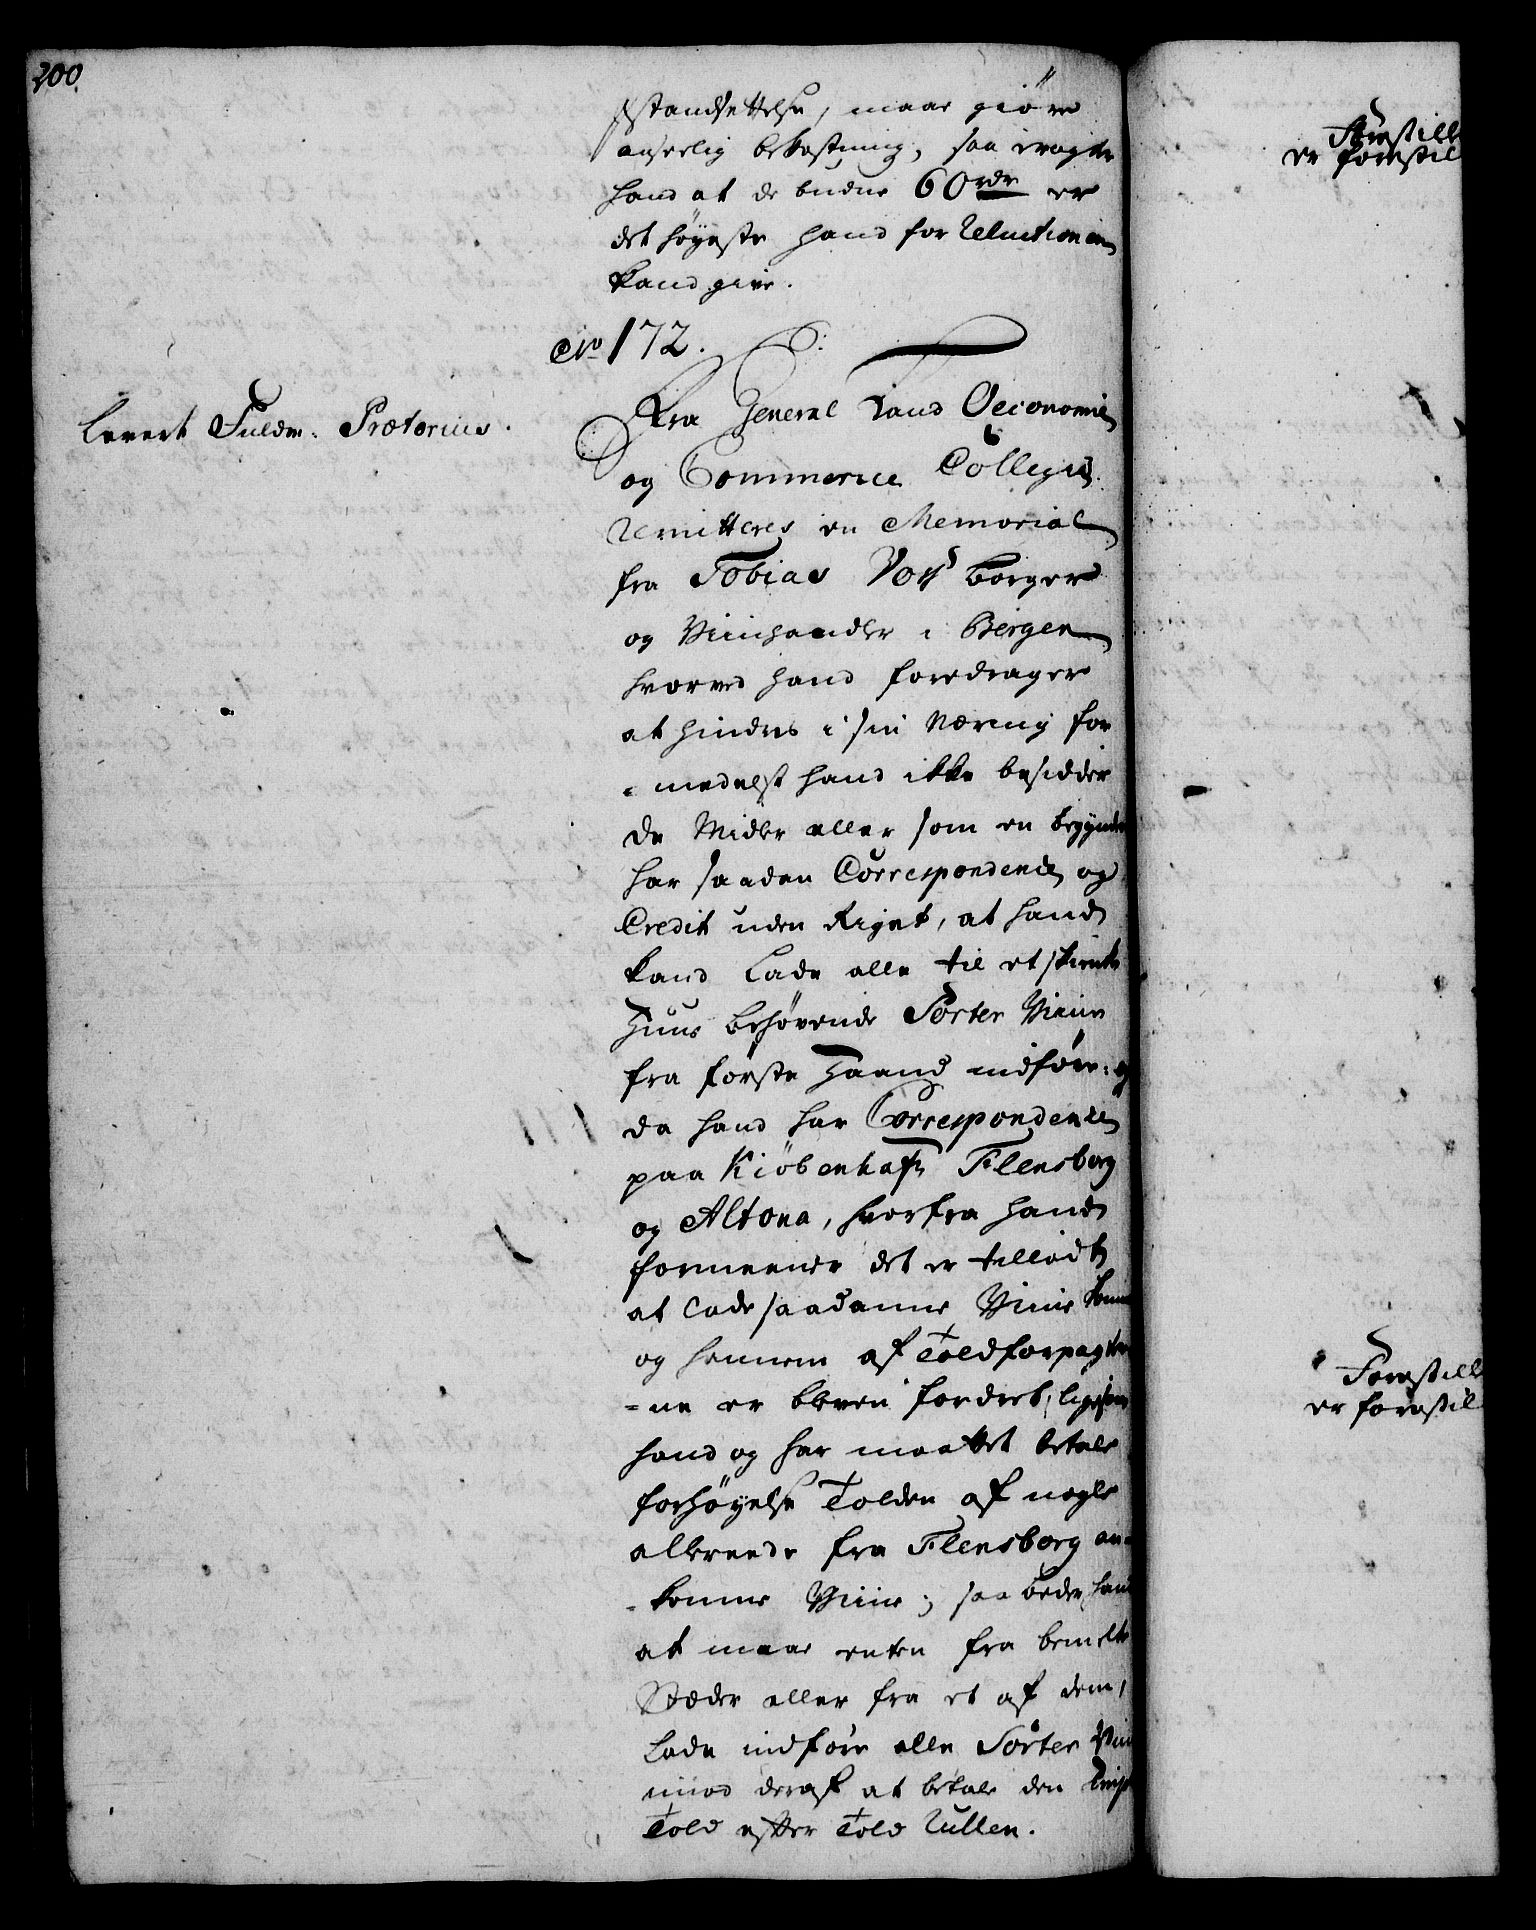 200.
istandsættelse, maae giöre
anseelig bekostning, saa eragter
hand at de budne 60 rdr er
det höyeste hand for Reluctionen
kand give.
No 172.
Levert Fuldm. Prætorius.
Fra General Land Oeconomie
og Commerce Collegio
remitteres en Memorial
fra Tobias Voss borger
og Viinhandler i Bergen
hvorved hand foredrager
at hindres i sin Næring for
= medelst hand ikke besidder
de Midler eller som en begynder
har saadan Correspondence og
Credit uden Riget, at hand
kand lade alle til et skienke
Huus behövende Sorter Viine
fra förste Haand indföre, og
da hand har Correspondence
paa Kiöbenhafn Flensborg
og Altona, hvorfra hand
formeener det er tilladt
at lade saadanne Viine komme
og hannem af Toldforpagter
= ne er bleven fordret, ligesom
hand og har maattet betale
forhöyelse Tolden af nogle
allereede fra Flensborg an=
= komne Viine; saa beder hand
at maae enten fra bemelte
Stæder eller fra et af dem,
lade indföre alle Sorter Viin
imod deraf at betale den
Told efter Told Rullen.
Forestill
er forestil
Forestill
er forestil